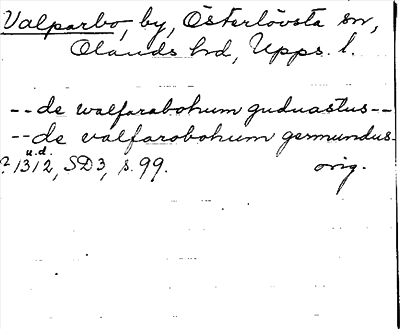 Valparbo, by, Österlövsta sn,
Olands hd, Upps. l.
-- de walfarabohum guduastus --
-- de valfarobohum germundus.
u.d.
? 1312, SD3, s. 99. orig.